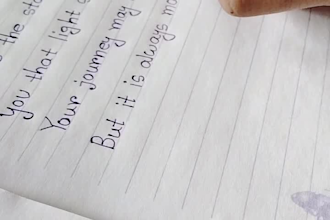 the sta
you that light
Your journey may
But it is always mo